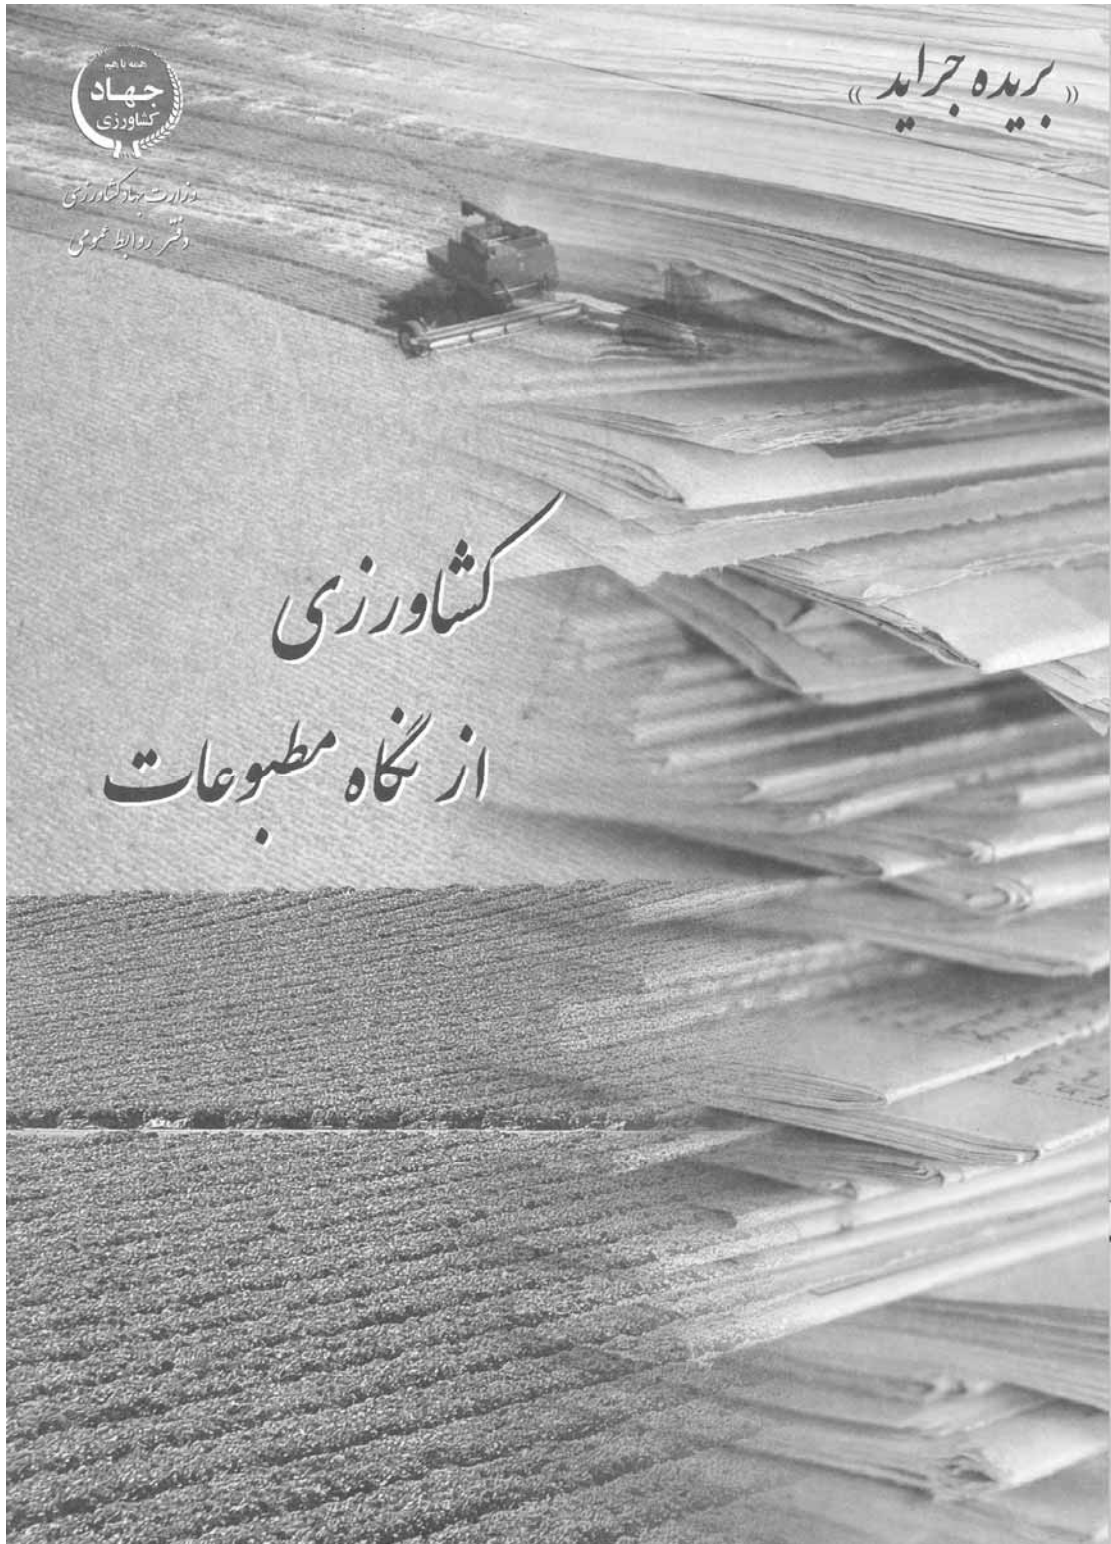 « بریده جراید »
همه با هم
جهاد
کشاورزی
وزارت جهاد کشاورزی
دفتر روابط عمومی
کشاورزی
از نگاه مطبوعات